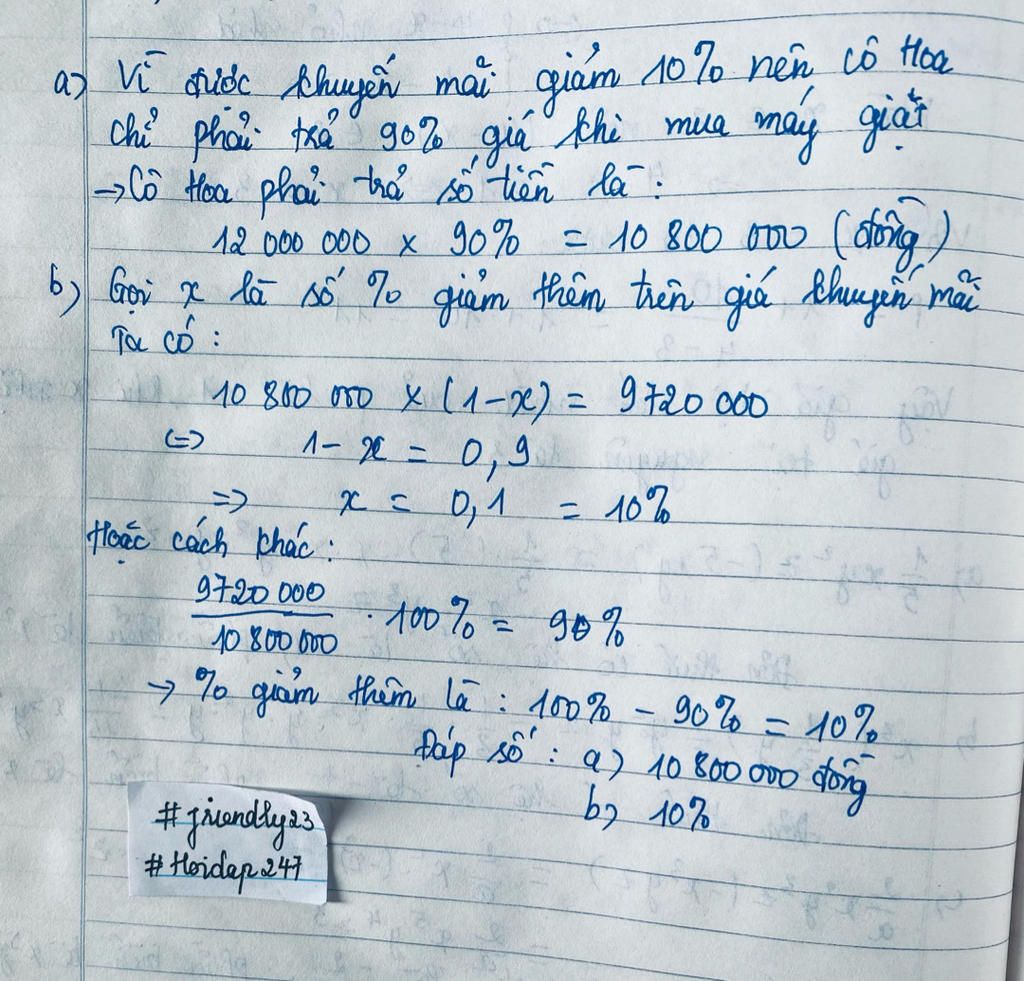 a) Vì được khuyến mãi giảm 10% nên cô Hoa
chỉ phải trả 90% giá khi mua máy giặt
→ Cô Hoa phải trả số tiền là:
12 000 000 x 90% = 10 800 000 (đồng)
b) Gọi x là số % giảm thêm trên giá khuyến mãi
Ta có:
10 800 000 x (1-x) = 9720 000
<=> 1-x = 0,9
=> x = 0,1 = 10%
Hoặc cách khác:
9720 000
10 800 000 . 100% = 90%
→ % giảm thêm là : 100% - 90% = 10%
Đáp số : a) 10 800 000 đồng
b) 10%
#friendly23
#Hoidap247